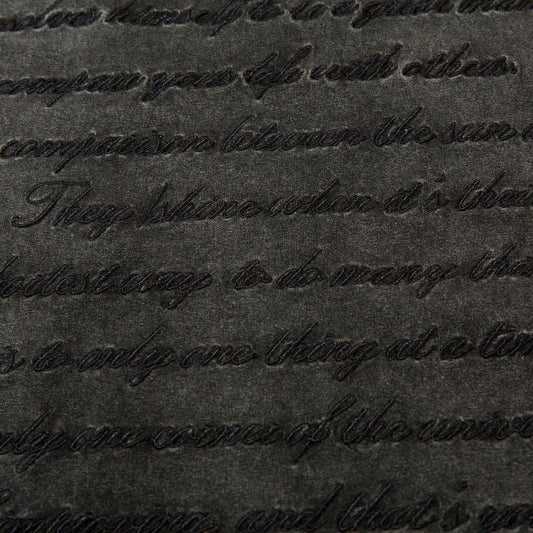 himself to do a great
compare your life with others.
comparison between the sun
They shine when it's their
fastest way to do many
to only one thing at a time
only one corner of the univer
improving, and that's yo